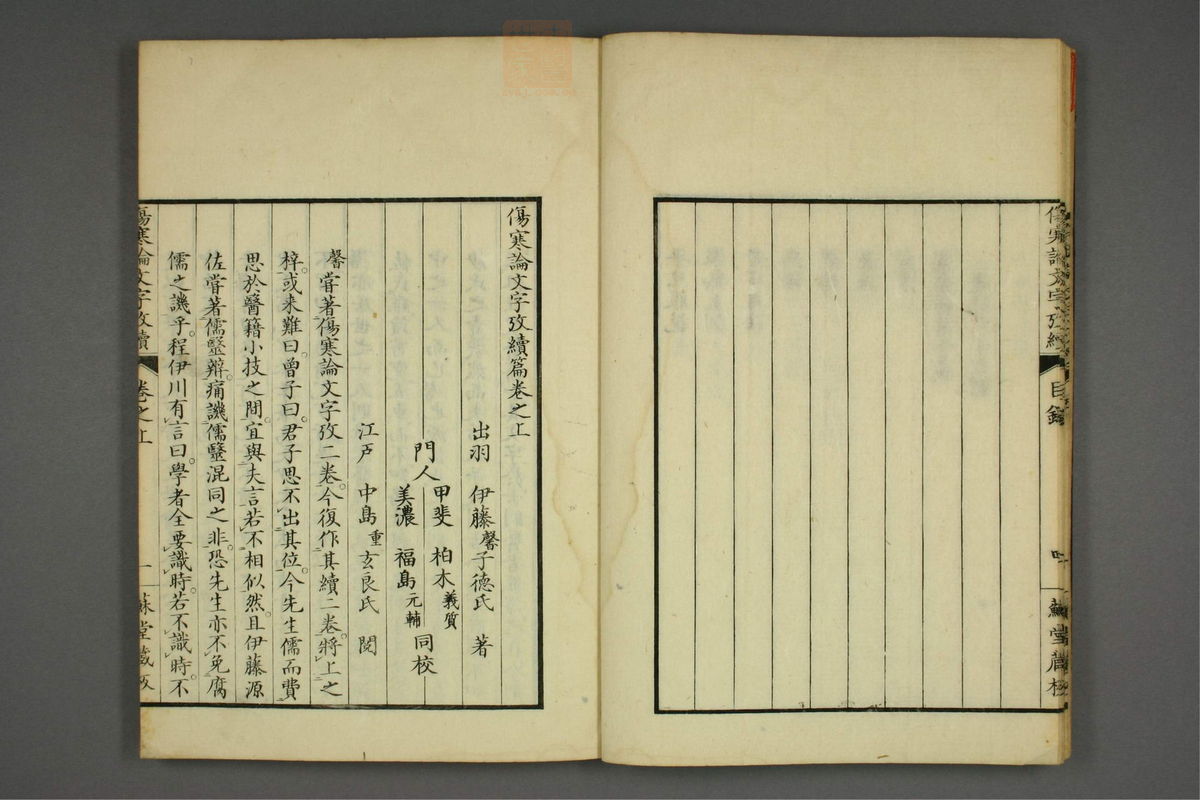 傷寒論文字攷續
目錄
蘇堂藏板
傷寒論文字攷續篇卷之上
出羽 伊藤馨子德氏 著
甲斐 柏木義質
門人 同校
美濃 福島元輔
江戸 中島重玄良氏 閱
馨甞著傷寒論文字攷二卷。今復作其續二卷。將上之
梓。或来難曰。曾子曰。君子思不出其位。今先生儒而費
思於醫籍小技之間。宜與夫言若不相似然。且伊藤源
佐甞著儒毉辨。痛譏儒毉混同之非。恐先生亦不免腐
儒之譏乎。程伊川有言曰。學者全要識時。若不識時。不
傷寒論文字攷續
卷之上
一
蘇堂藏板